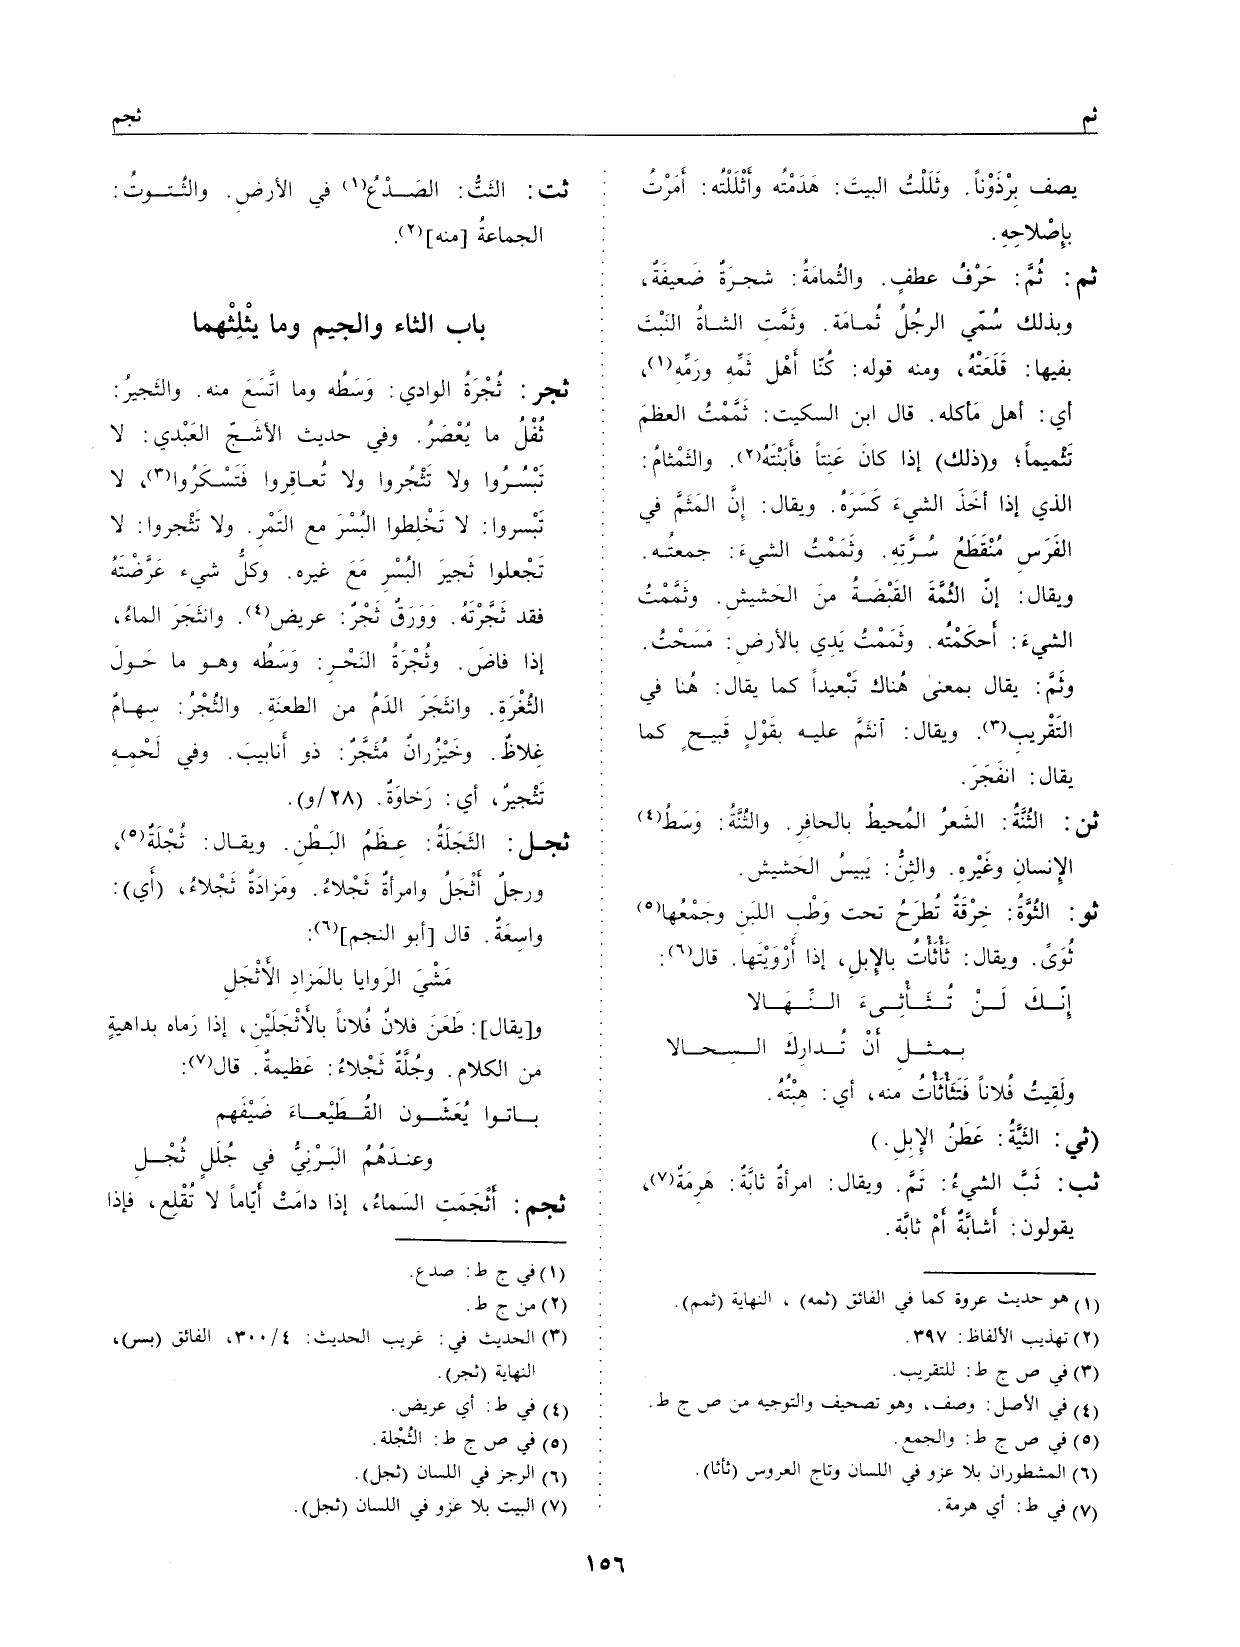 ثم
ثجم
يصف بِرْذَوْناً. وثَلَلْتُ البيتَ: هَدَمْتُه وأَثْلَلْتُه: أَمَرْتُ
بإِصْلاحِهِ.
ثم: ثُمَّ: حَرْفُ عطفٍ. والثُمامَةُ: شجرَةٌ ضَعيفَةٌ،
وبذلك سُمّي الرجلُ ثُمامَة. وثَمَّتِ الشاةُ النَبْتَ
بفيها: قَلَعَتْهُ، ومنه قوله: كُنّا أَهْلَ ثَمِّهِ ورَمِّهِ(١)،
أي: أهل مَأكله. قال ابن السكيت: ثَمَّمْتُ العظمَ
تَثْميماً؛ و(ذلك) إذا كانَ عَنِتاً فأَبَنْتَهُ(٢). والثَمْثامُ:
الذي إذا أخَذَ الشيءَ كَسَرَهُ. ويقال: إنَّ المَثَمَّ في
الفَرَسِ مُنْقَطَعُ سُرَّتِهِ. وثَمَمْتُ الشيءَ: جمعتُه.
ويقال: إنّ الثُمَّةَ القَبْضَةُ منَ الحَشيشِ. وثَمَّمْتُ
الشيءَ: أحكَمْتُه. وثَمَمْتُ يَدي بالأرضِ: مَسَحْتُ.
وثَمَّ: يقال بمعنى هُناك تَبْعيداً كما يقال: هُنا في
التَقْريب(٣). ويقال: آنثَمَّ عليه بقَوْلٍ قَبيحٍ كما
يقال: انفَجَرَ.
ثن: الثُنَّةُ: الشَعرُ المُحيطُ بالحافِرِ. والثُنَّةُ: وَسَطُ(٤)
الإنسانِ وغَيْرِهِ. والثِنُّ: يَبيسُ الحَشيشِ.
ثو: الثُوَّةُ: خِرْقَةٌ تُطرَحُ تحت وَطْبِ اللبَنِ وجَمْعُها(٥)
ثُوَىً. ويقال: ثَأْثَأْتُ بالإبلِ، إذا أَرْوَيْتَها. قال(٦):
إنَّكَ لَنْ تُثَأْثِىءَ النِّهالا
بمثلِ أَنْ تُدارِكَ السِجالا
ولَقِيتُ فُلاناً فَتَثَأْثَأْتُ منه، أي: هِبْتُهُ.
(ثي: الثَيَّةُ: عَطَنُ الإبلِ.)
ثب: ثَبَّ الشيءُ: تَمَّ. ويقال: امرأةٌ ثابَّةٌ: هَرِمَةٌ(٧)،
يقولون: أَشابَّةٌ أَمْ ثابَّة.
(١) هو حديث عروة كما في الفائق (ثمه) ، النهاية (ثمم).
(٢) تهذيب الألفاظ: ٣٩٧.
(٣) في ص ج ط: للتقريب.
(٤) في الأصل: وصف، وهو تصحيف والتوجيه من ص ج ط.
(٥) في ص ج ط: والجمع.
(٦) المشطوران بلا عزو في اللسان وتاج العروس (ثأثا).
(٧) في ط: أي هرمة.
ثت: الثَتُّ: الصَدْعُ(١) في الأرضِ. والثُتوتُ:
الجماعةُ [منه](٢).
باب الثاء والجيم وما يثْلِثْهما
ثجر: ثُجْرَةُ الوادي: وَسَطُه وما اتَّسَعَ منه. والثَجيرُ:
ثُفْلُ ما يُعْصَرُ. وفي حديث الأشَجّ العَبْدي: لا
تَبْسُروا ولا تَثْجُروا ولا تُعاقِروا فَتَسْكَرُوا(٣)، لا
تَبْسروا: لا تَخْلطوا البُسْرَ مع التَمْر. ولا تَثْجروا: لا
تَجْعلوا ثَجيرَ البُسْرِ مَعَ غيره. وكلُّ شيء عَرَّضْتَهُ
فقد ثَجَّرْتَهُ. وَوَرَقٌ ثَجْرٌ: عريض(٤). وانثَجَرَ الماءُ،
إذا فاضَ. وثُجْرَةُ النَحْرِ: وَسَطُه وهو ما حَولَ
الثُغْرَةِ. وانثَجَرَ الدَمُ من الطعنَةِ. والثُجْرُ: سِهامٌ
غِلاظٌ. وخَيْزُرانٌ مُثَجَّرٌ: ذو أَنابيبَ. وفي لَحْمِهِ
تَثْجيرٌ، أي: رَخاوَةٌ. (٢٨/و).
ثجل: الثَجَلَةُ: عِظَمُ البَطْنِ. ويقال: ثُجْلَةٌ(٥)،
ورجلٌ أَثْجَلُ وامرأةٌ ثَجْلاءُ. ومَزادَةٌ ثَجْلاءُ، (أي):
واسِعَةٌ. قال [أبو النجم](٦):
مَشْيَ الرَوايا بالمَزادِ الأَثْجَلِ
و[يقال]: طَعَنَ فلانٌ فُلاناً بالأَثْجَلَيْنِ، إذا رَماه بداهيةٍ
من الكلام. وجُلَّةٌ ثَجْلاءُ: عَظيمَةٌ. قال(٧):
باتوا يُعَشّون القُطَيْعاءَ ضَيْفَهم
وعندَهُمُ البَرْنِيُّ في جُلَلٍ ثُجْلِ
ثجم: أَثْجَمَتِ السَماءُ، إذا دامَتْ أَيّاماً لا تُقْلِع، فإذا
(١) في ج ط: صدع.
(٢) من ج ط.
(٣) الحديث في: غريب الحديث: ٣٠٠/٤، الفائق (بسر)،
النهاية (ثجر).
(٤) في ط: أي عريض.
(٥) في ص ج ط: الثُجْلة.
(٦) الرجز في اللسان (ثجل).
(٧) البيت بلا عزو في اللسان (ثجل).
١٥٦